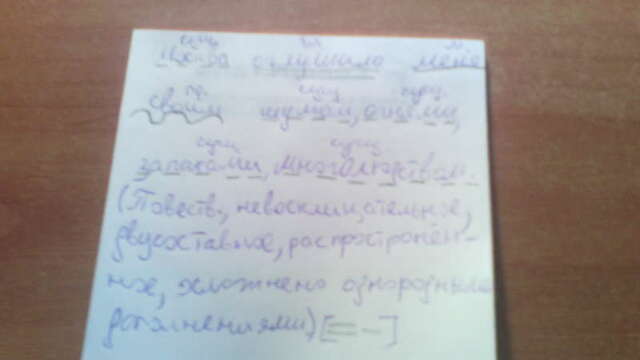 сущ. гл. м.
Москва оглушила меня
пр. сущ. сущ.
своим шумом, огнями,
сущ. сущ.
запахами, многолюдством.
(Повеств., невосклицательное,
двусоставное, распространен-
ное, осложнено однородными
дополнениями) [= –]